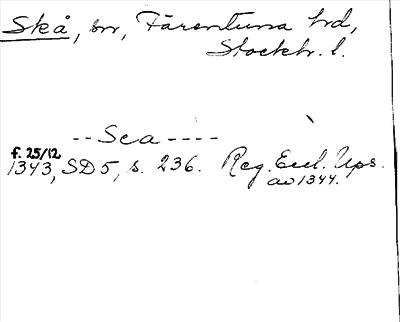 Skå, sn, Färentuna hrd,
Stockh. l.
--Sca----
f. 25/12
1343, SD5, s. 236. Reg. Eccl. Ups.
av 1344.